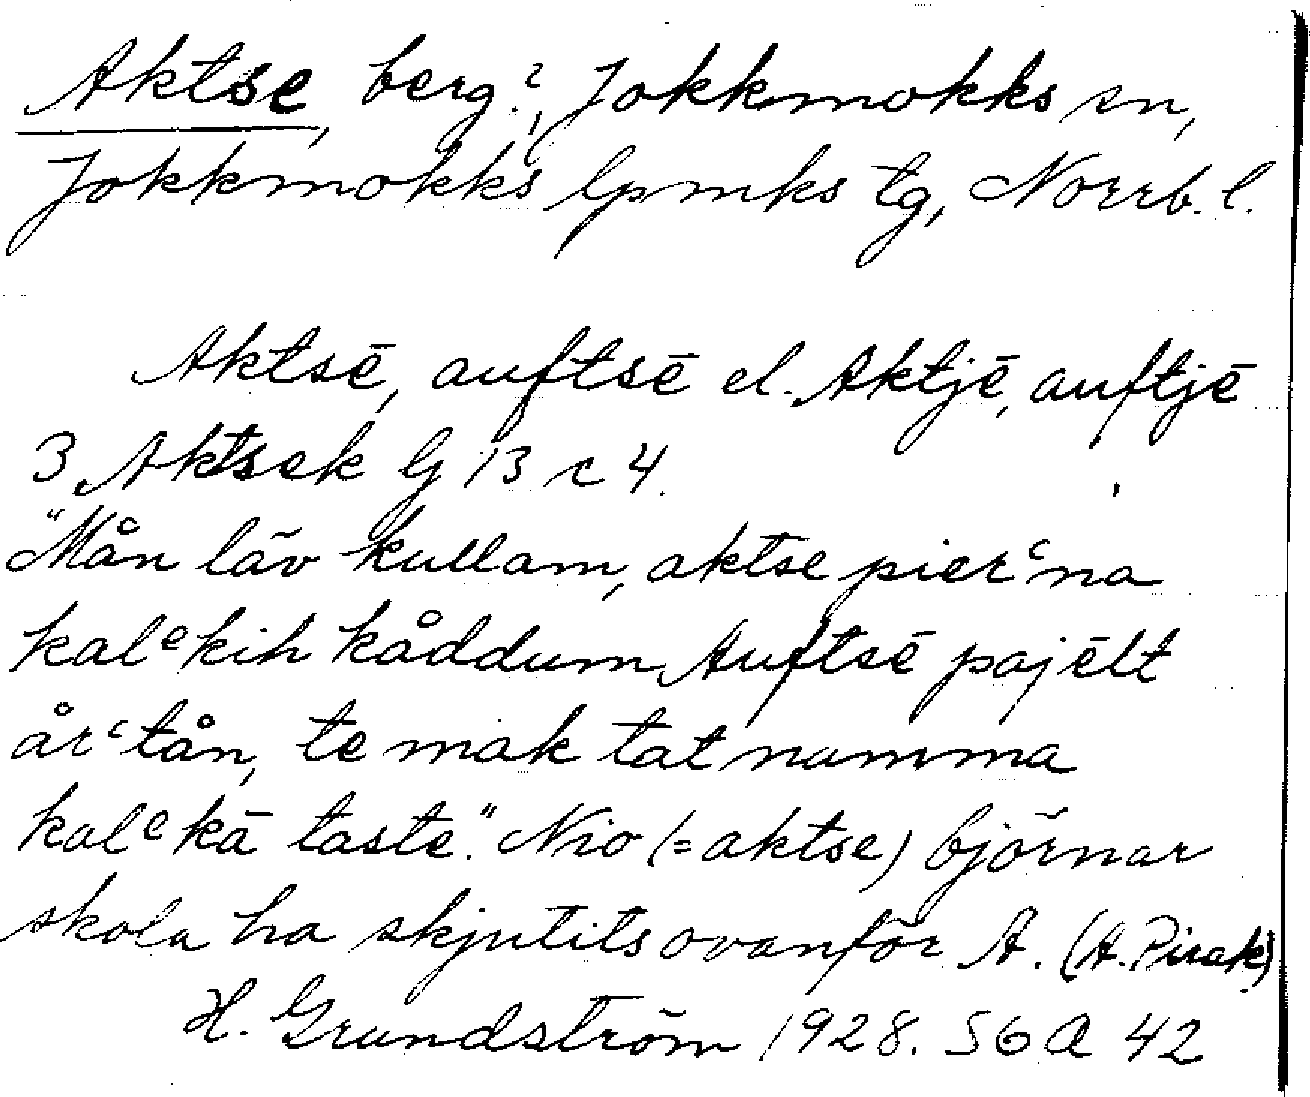 Aktse, berg?, Jokkmokks sn,
Jokkmokks lpmks tg, Norrb. l.
Aktsē, auftsē el. Aktjē, auftjē
3 Aktsek G 13 c 4.
"Mån läv kullam, aktse pierᶜna
kalᵉkih kåddum Auftsē pajēlt
årᶜtån, te mak tat namma
kalᵉkā tastē." Nio (= aktse) björnar
skola ha skjutits ovanför A. (A. Pirak)
H. Grundström 1928. S6 A 42